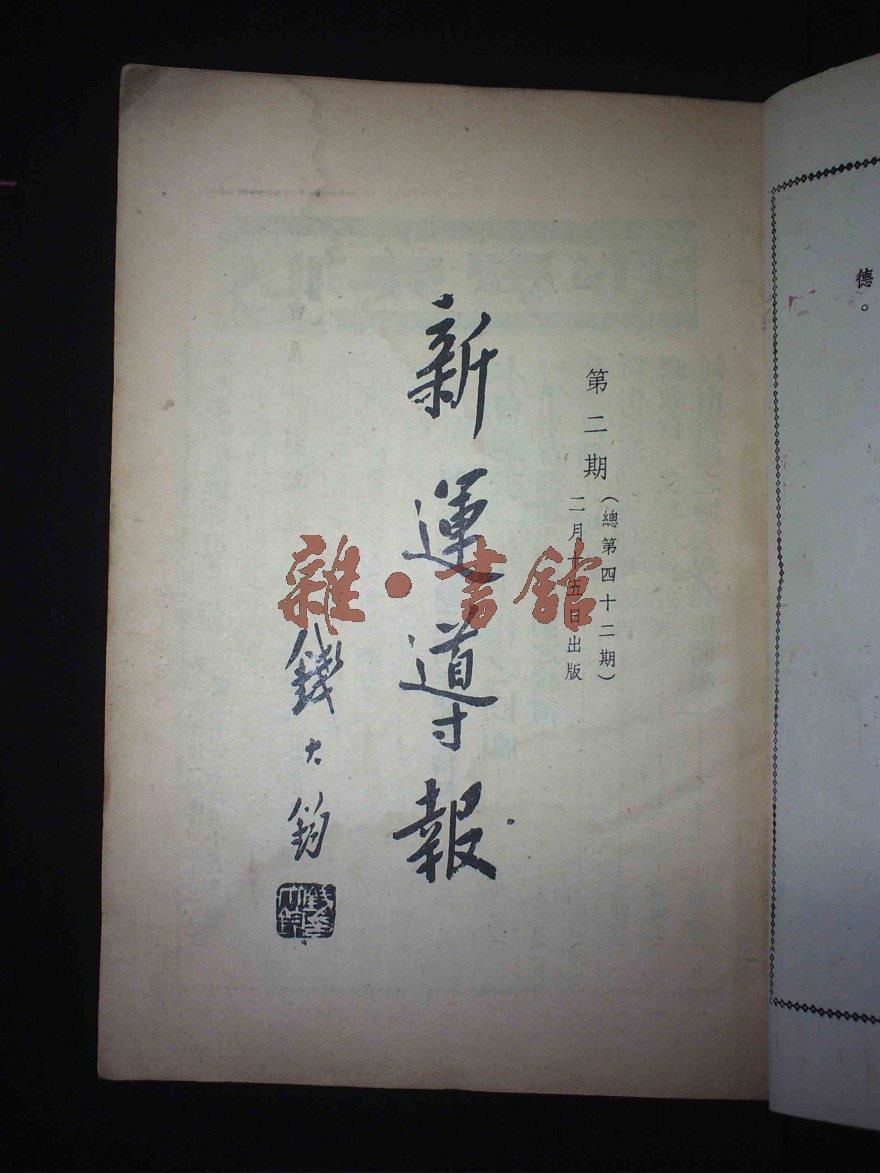 德。
第二期(總第四十二期)
二月十五日出版
新運導報
錢大鈞
雜·書館